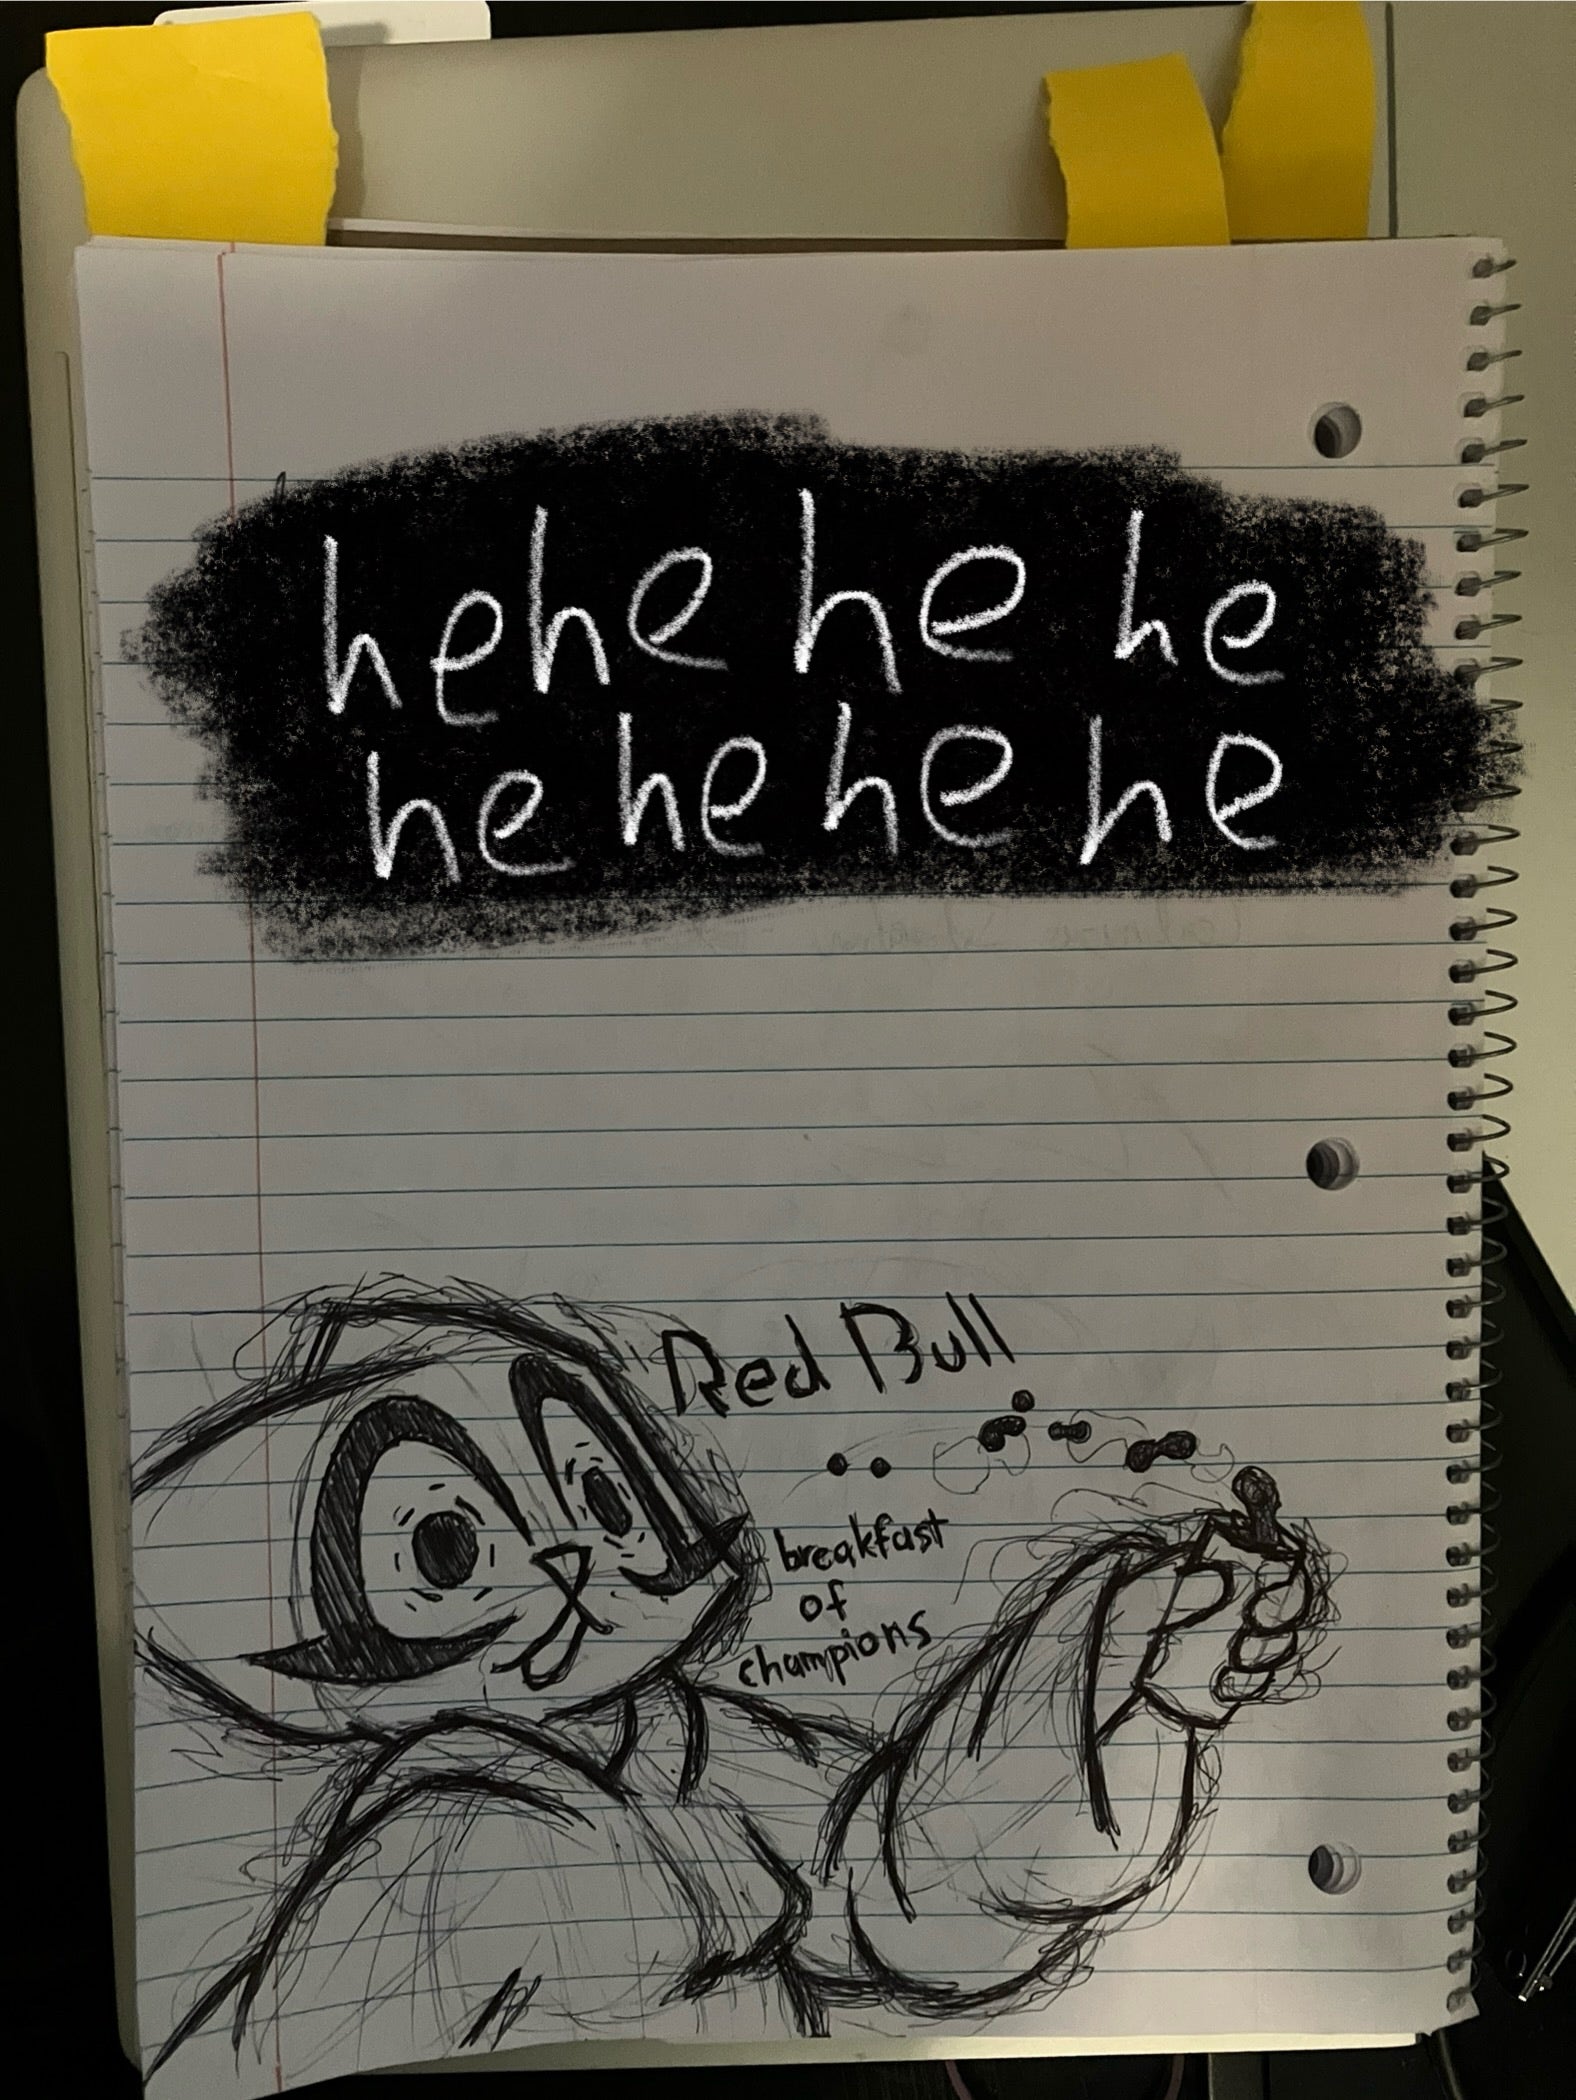 hehe he he
he he he he
Red Bull
breakfast
of
champions